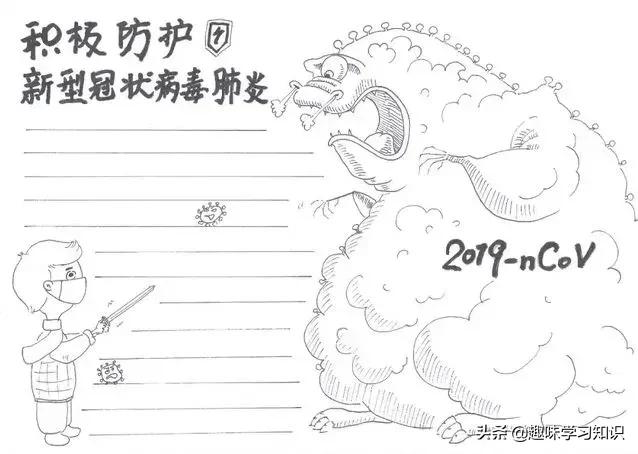 积极防护
新型冠状病毒肺炎
2019-nCoV
头条 @趣味学习知识